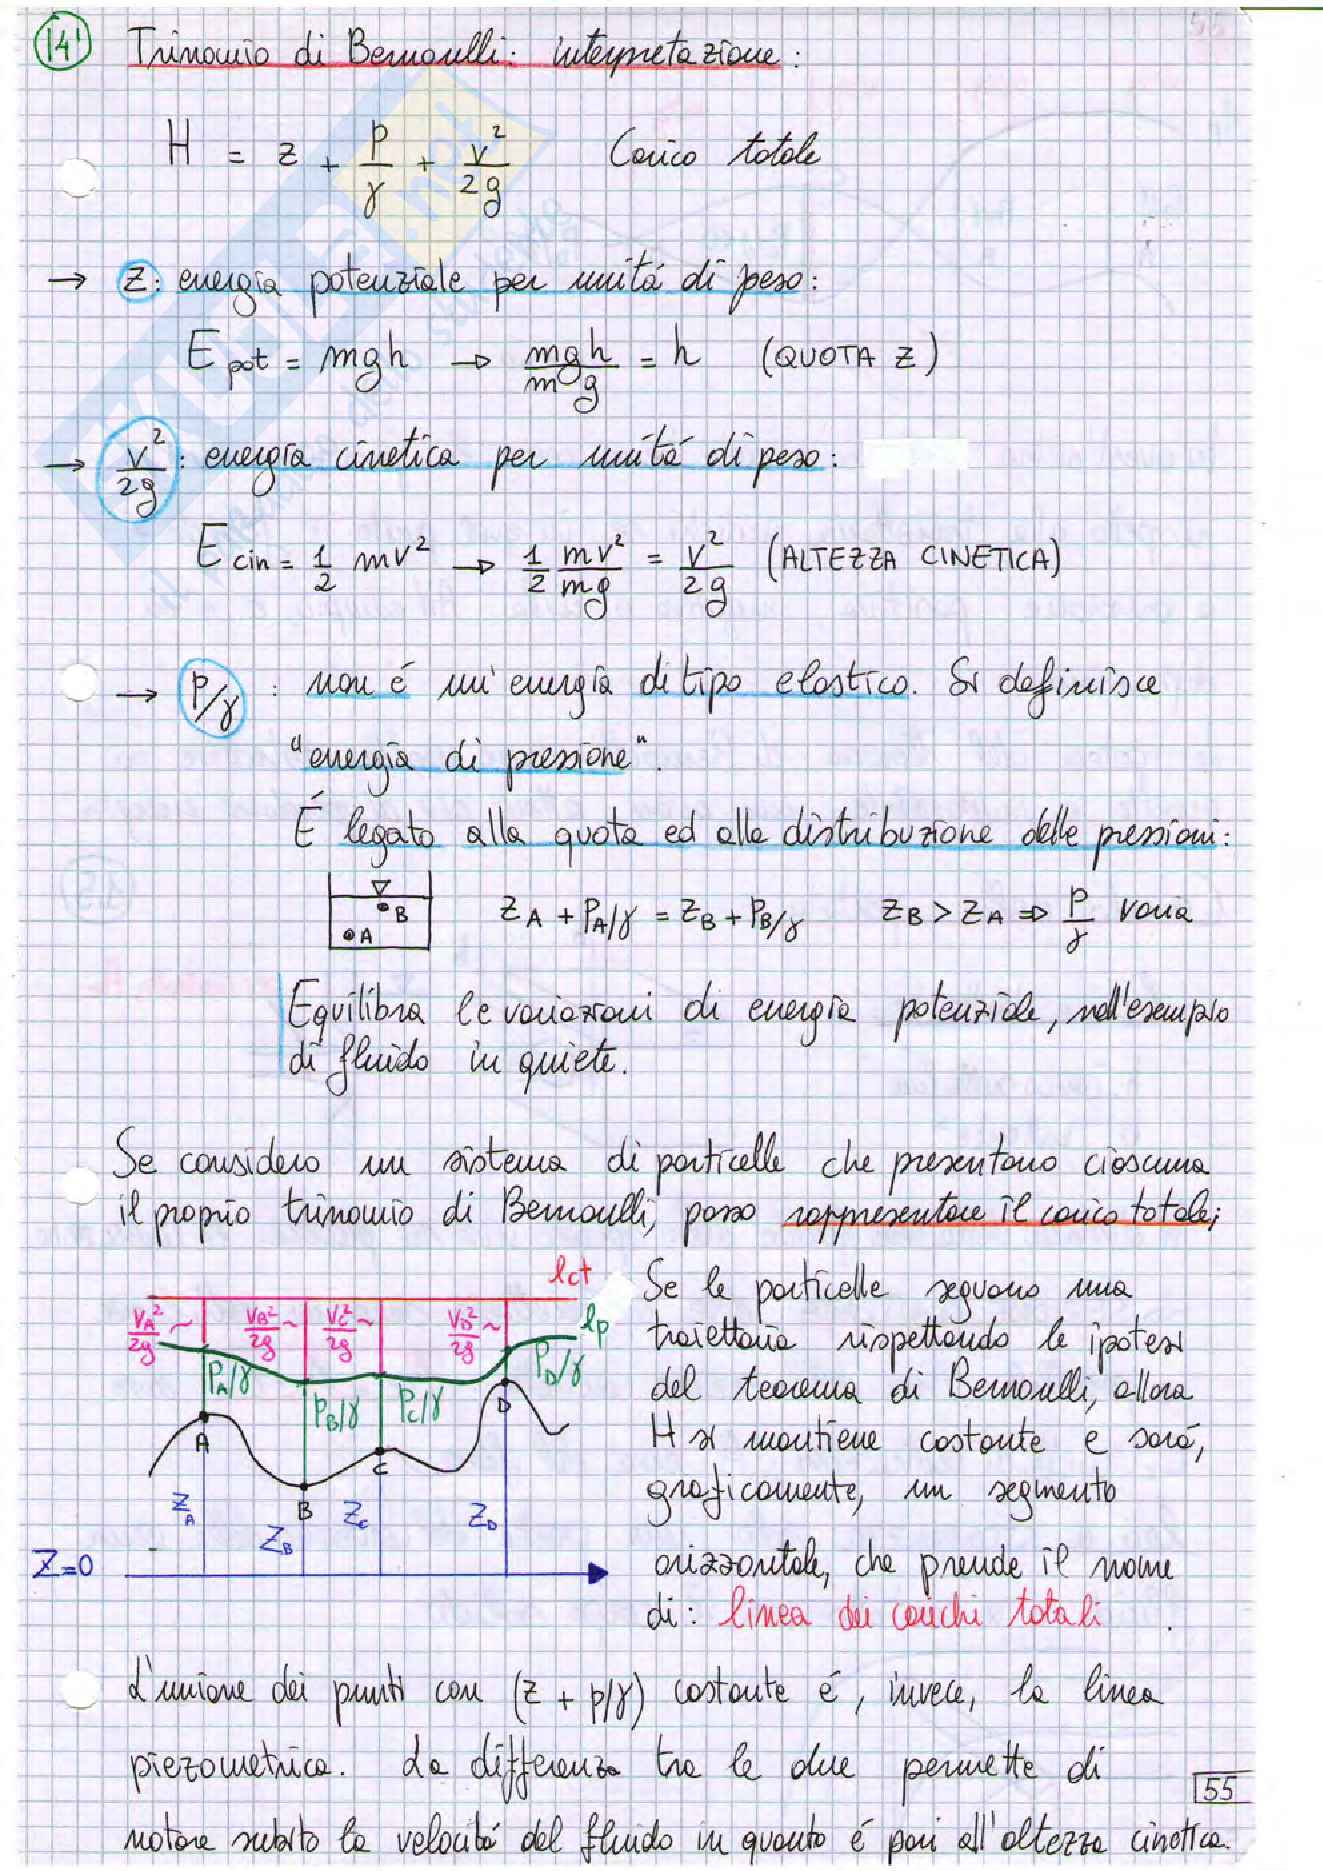 14) Trinomio di Bernoulli: interpretazione:
H = z + p/γ + v²/2g Carico totale
→ z: energia potenziale per unitá di peso:
E pot = mgh → mgh/mg = h (QUOTA Z)
→ v²/2g : energia cinetica per unitá di peso:
E cin = 1/2 mv² → 1/2 mv²/mg = v²/2g (ALTEZZA CINETICA)
→ P/γ : non é un'energia di tipo elastico. Si definisce
"energia di pressione".
É legato alla quota ed alla distribuzione delle pressioni:
B
A
ZA + PA/γ = ZB + PB/γ ZB > ZA ⇒ P/γ varia
Equilibra le variazioni di energia potenziale, nell'esempio
di fluido in quiete.
Se considero un sistema di particelle che presentano ciascuna
il proprio trinomio di Bernoulli, posso rappresentare il carico totale;
lct
VA²/2g ~ VB²/2g ~ VC²/2g ~ VD²/2g ~ lp
PA/γ PB/γ PC/γ PD/γ
A B C D
ZA ZB ZC ZD
Z=0
Se le particelle seguono una
traiettoria rispettando le ipotesi
del teorema di Bernoulli, allora
H si mantiene costante e sará,
graficamente, un segmento
orizzontale, che prende il nome
di: linea dei carichi totali.
L'unione dei punti con (z + p/γ) costante é, invece, la linea
piezometrica. La differenza tra le due permette di
notare subito la velocitá del fluido in quanto é pari all'altezza cinetica.
55